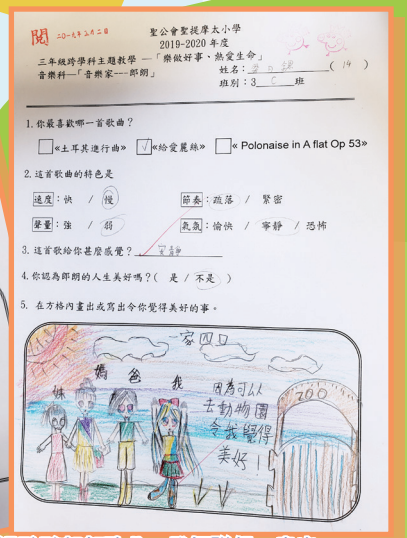 閱
二〇一九年
聖公會聖提摩太小學
2019-2020 年度
三年級跨學科主題教學 —「樂做好事、熱愛生命」
音樂科—「音樂家---郎朗」
姓名: ( 14 )
班別:3 C 班
1.你最喜歡哪一首歌曲?
«土耳其進行曲» ✓ «給愛麗絲» « Polonaise in A flat Op 53»
2.這首歌曲的特色是
速度:快 / 慢 節奏:疏落 / 緊密
聲量:強 / 弱 氣氛:愉快 / 寧靜 / 恐怖
3.這首歌給你甚麼感覺? 寧靜
4.你認為郎朗的人生美好嗎?( 是 / 不是 )
5. 在方格內畫出或寫出令你覺得美好的事。
一家四口
妹 媽 爸 我
因為可以
去動物園
令我覺得
美好!
ZOO